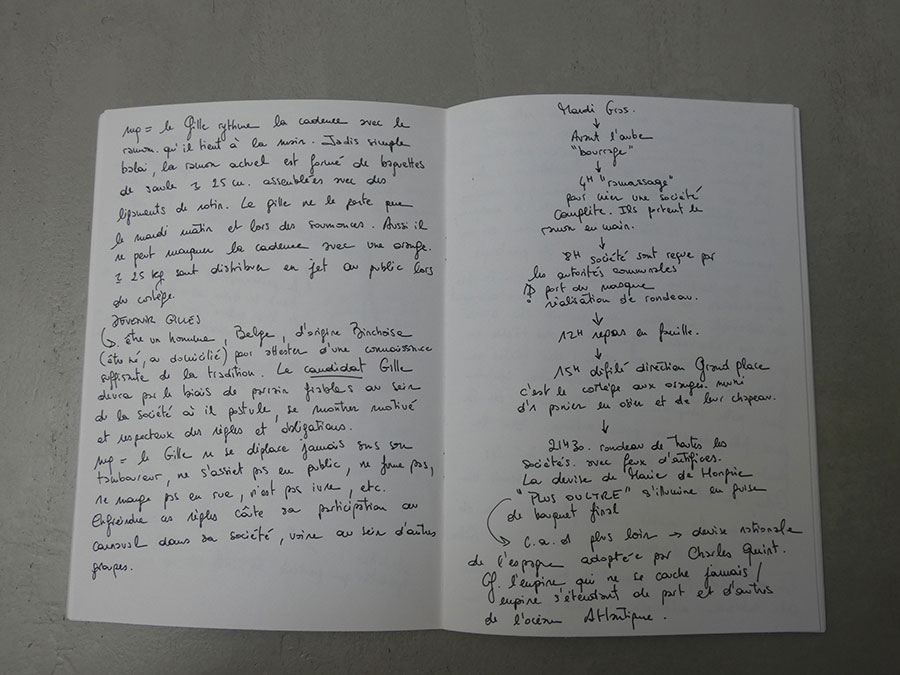 mq = le Gille rythme la cadence avec le
ramon qu'il tient à la main. Jadis simple
balai, le ramon actuel est formé de baguettes
de saule ± 25 cm. assemblées avec des
ligaments de rotin. Le gille ne le porte que
le mardi matin et lors des soumonces. Aussi il
ne peut marquer la cadence avec une orange.
± 25 kg sont distribuer en jet au public lors
du cortège.
DEVENIR GILLES
↳ être un homme, Belge, d'origine Binchoise
(être né, ou domicilié) pour attester d'une connaissance
suffisante de la tradition. Le candidat Gille
devra par le biais de parrain fiables au sein
de la société où il postule, se montrer motivé
et respecteux des règles et obligations.
mq = le Gille ne se déplace jamais sans son
tamboureur, ne s'assiet pas en public, ne fume pas,
ne mange pas en rue, n'est pas ivre, etc.
Enfreindre ces règles coûte sa participation au
carnaval dans sa société, voire au sein d'autres
groupes.
Mardi Gras.
↓
Avant l'aube
"bourrage"
↓
4H "ramassage"
pour créer une société
complète. Ils portent le
ramon en main.
↓
8H société sont reçue par
les autorités communales
port du masque
réalisation de rondeau.
↓
12H repas en famille.
↓
15H défilé direction Grand place
c'est le cortège aux oranges. muni
d'1 panier en osier et de leur chapeau.
↓
21H30. rondeau de toutes les
sociétés. avec feux d'artifices.
La devise de Marie de Hongrie
"PLUS OULTRE" s'illumine en guise
de bouquet final
↳ c.a.d plus loin → devise nationale
de l'espagne adoptée par Charles Quint.
Cf. l'empire qui ne se couche jamais /
empire s'étendant de part et d'autres
de l'océan Atlantique.